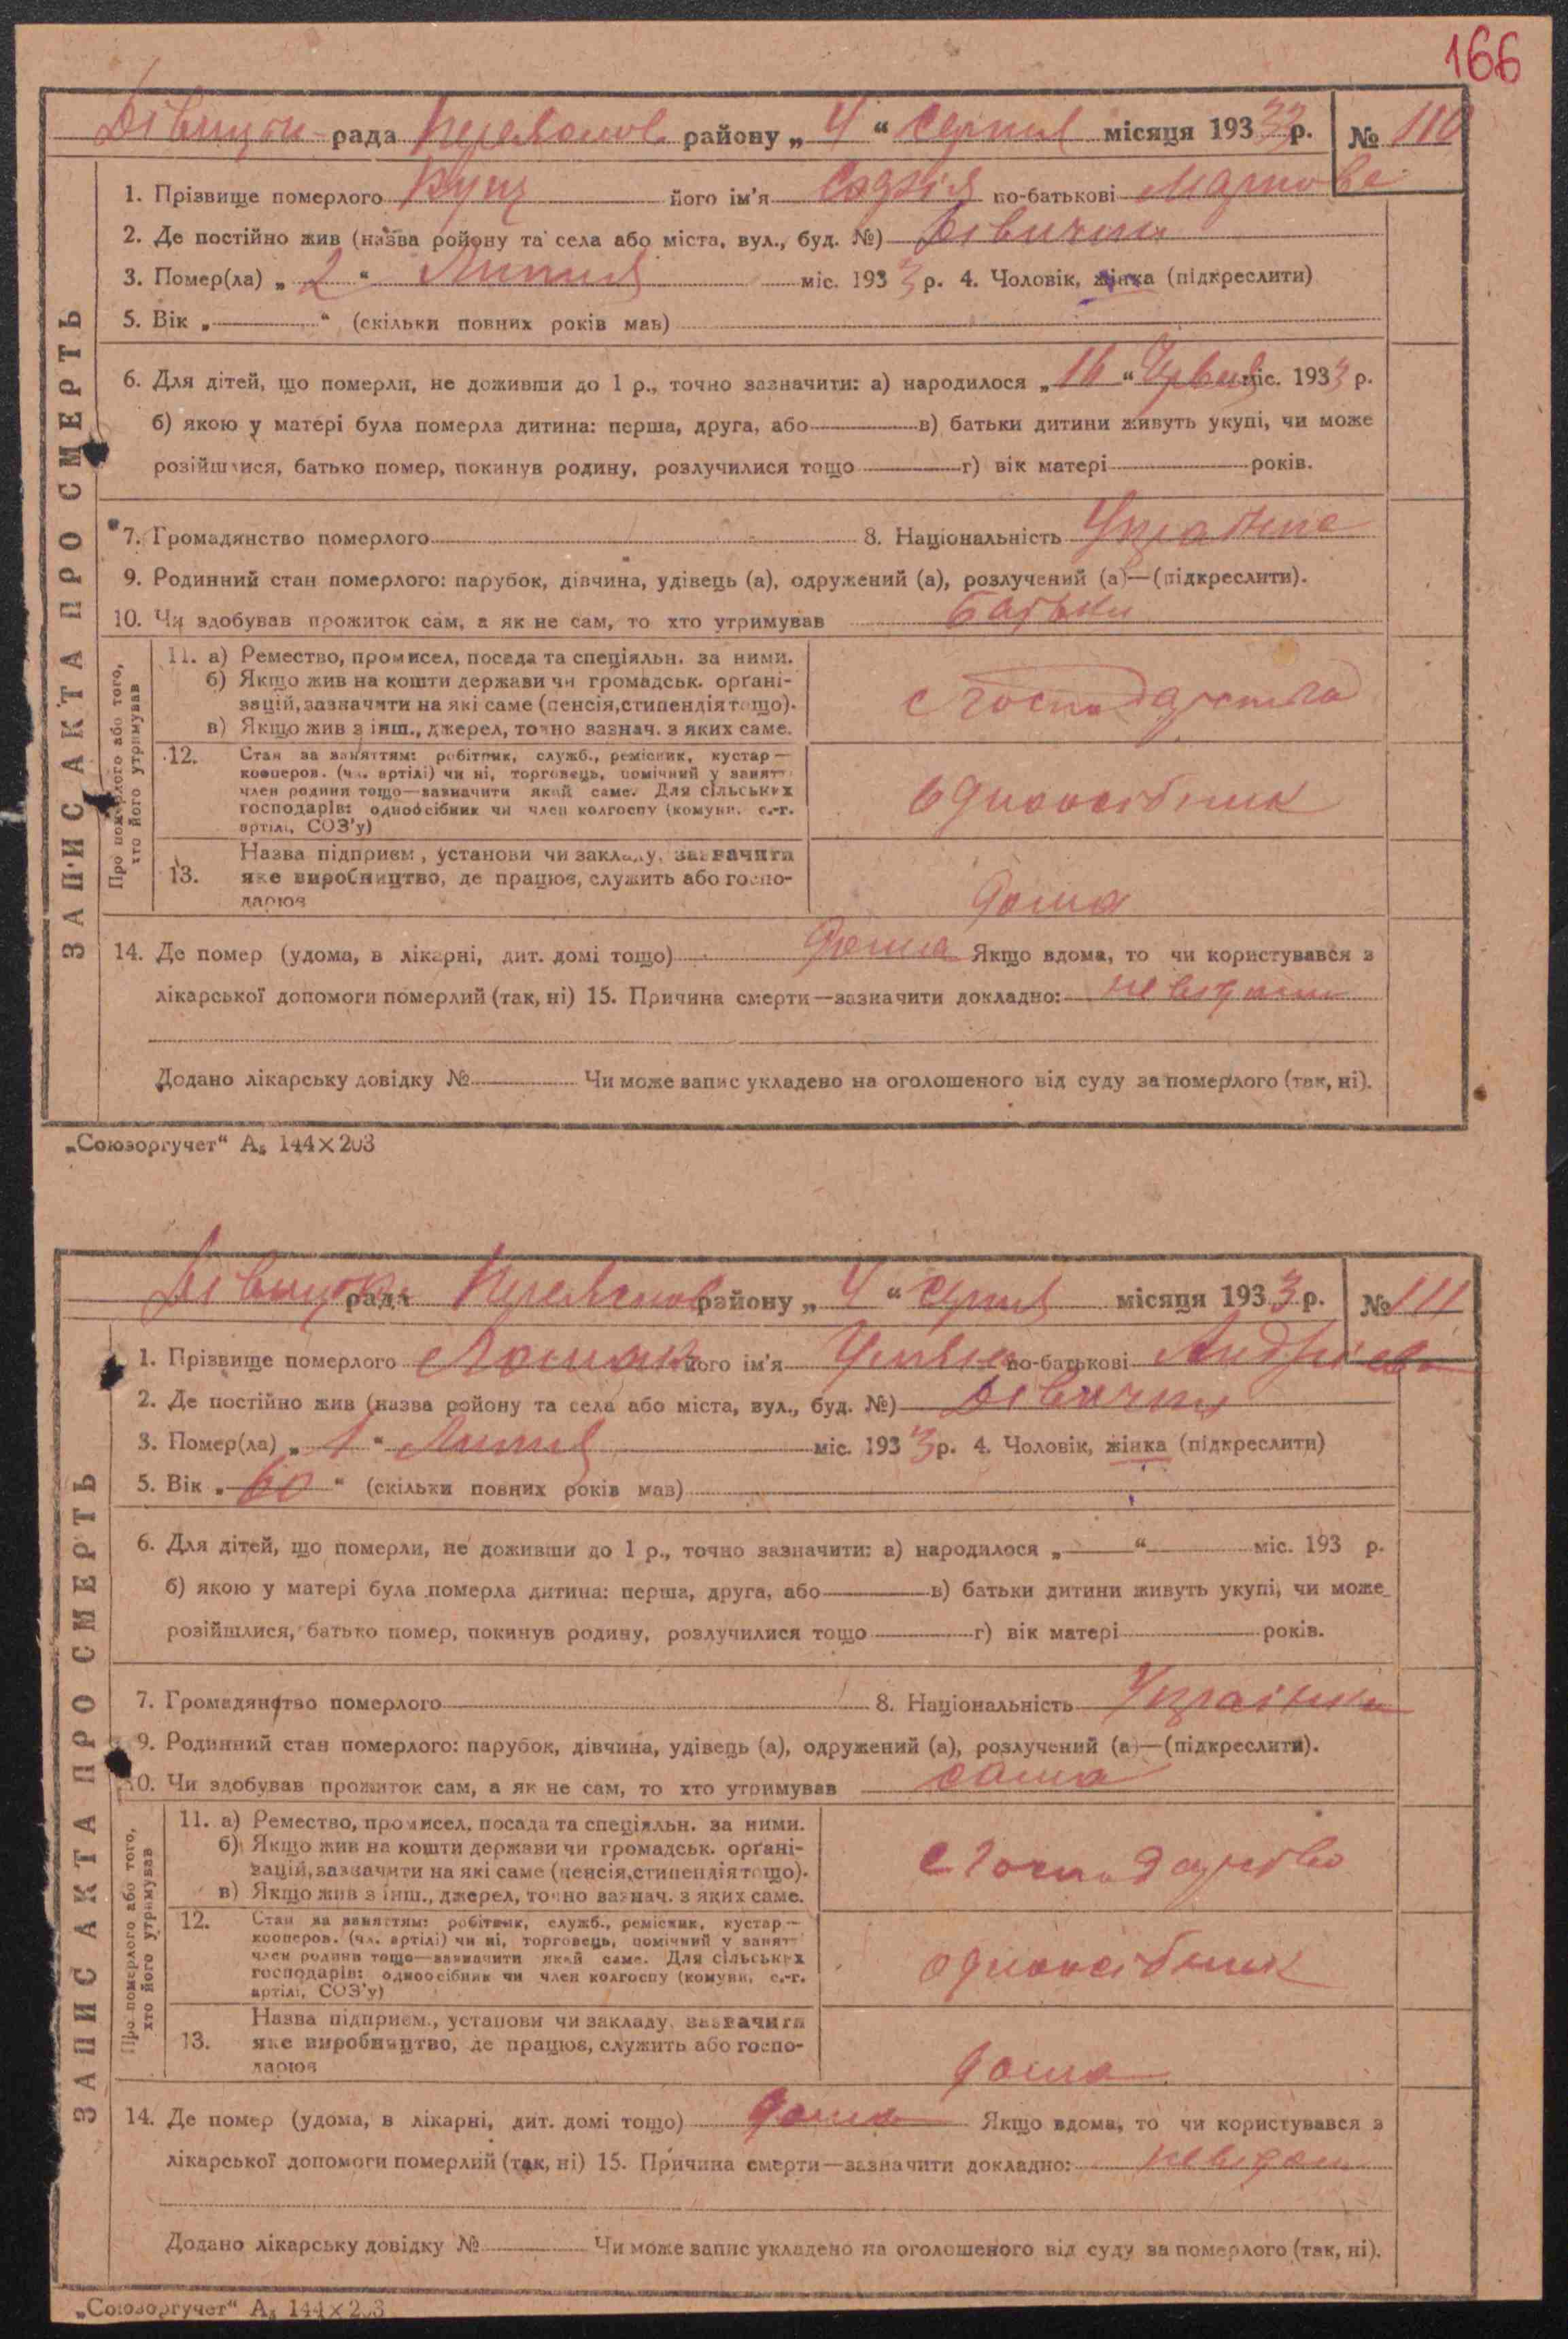 166
рада району „ 4 “ Серпня місяця 1933 р. № 110
1. Прізвище померлого Куц його ім'я Содхія по-батькові
2. Де постійно жив (назва ройону та села або міста, вул., буд. №) Дівички
3. Помер(ла) „ 2 “ Липня міс. 1933 р. 4. Чоловік, жінка (підкреслити)
5. Вік „ “ (скільки повних років мав)
6. Для дітей, що померли, не доживши до 1 р., точно зазначити: а) народилося „ 16 “ Червня міс. 1933 р.
б) якою у матері була померла дитина: перша, друга, або в) батьки дитини живуть укупі, чи може
розійшлися, батько помер, покинув родину, розлучилися тощо г) вік матері років.
7. Громадянство померлого 8. Національність
9. Родинний стан померлого: парубок, дівчина, удівець (а), одружений (а), розлучений (а)—(підкреслити).
10. Чи здобував прожиток сам, а як не сам, то хто утримував батьки
11. а) Ремество, промисел, посада та спеціяльн. за ними.
б) Якщо жив на кошти держави чи громадськ. орґані-
зацій, зазначити на які саме (пенсія, стипендія тощо).
в) Якщо жив з інш., джерел, точно зазнач. з яких саме.
с господарства
12. Стан за заняттям: робітник, служб., ремісник, кустар—
кооперов. (чл. артілі) чи ні, торговець, помічний у занятт
член родини тощо—зазначити який саме. Для сільських
господарів: одноосібник чи член колгоспу (комуни, с.-г.
артілі, СОЗ'у)
одноосібник
13. Назва підприєм., установи чи закладу, зазначити
яке виробництво, де працює, служить або госпо-
дарює
дома
14. Де помер (удома, в лікарні, дит. домі тощо) дома Якщо вдома, то чи користувався з
лікарської допомоги померлий (так, ні) 15. Причина смерти—зазначити докладно: невідоми
Додано лікарську довідку № Чи може запис укладено на оголошеного від суду за померлого (так, ні).
ЗАПИС АКТА ПРО СМЕРТЬ
Про померлого або того,
хто його утримував
„Союзоргучет“ А₅ 144×203
рада району „ 4 “ Серпня місяця 1933 р. № 111
1. Прізвище померлого його ім'я Уляна по-батькові Андріева
2. Де постійно жив (назва ройону та села або міста, вул., буд. №) Дівички
3. Помер(ла) „ 1 “ Липня міс. 1933 р. 4. Чоловік, жінка (підкреслити)
5. Вік „ 60 “ (скільки повних років мав)
6. Для дітей, що померли, не доживши до 1 р., точно зазначити: а) народилося „ “ міс. 193 р.
б) якою у матері була померла дитина: перша, друга, або в) батьки дитини живуть укупі, чи може
розійшлися, батько помер, покинув родину, розлучилися тощо г) вік матері років.
7. Громадянство померлого 8. Національність Українка
9. Родинний стан померлого: парубок, дівчина, удівець (а), одружений (а), розлучений (а)—(підкреслити).
10. Чи здобував прожиток сам, а як не сам, то хто утримував сама
11. а) Ремество, промисел, посада та спеціяльн. за ними.
б) Якщо жив на кошти держави чи громадськ. орґані-
зацій, зазначити на які саме (пенсія, стипендія тощо).
в) Якщо жив з інш., джерел, точно зазнач. з яких саме.
с господарства
12. Стан за заняттям: робітник, служб., ремісник, кустар—
кооперов. (чл. артілі) чи ні, торговець, помічний у занятт
член родини тощо—зазначити який саме. Для сільських
господарів: одноосібник чи член колгоспу (комуни, с.-г.
артілі, СОЗ'у)
одноосібник
13. Назва підприєм., установи чи закладу, зазначити
яке виробництво, де працює, служить або госпо-
дарює
дома
14. Де помер (удома, в лікарні, дит. домі тощо) дома Якщо вдома, то чи користувався з
лікарської допомоги померлий (так, ні) 15. Причина смерти—зазначити докладно: невідом
Додано лікарську довідку № Чи може запис укладено на оголошеного від суду за померлого (так, ні).
ЗАПИС АКТА ПРО СМЕРТЬ
Про померлого або того,
хто його утримував
„Союзоргучет“ А₅ 144×203